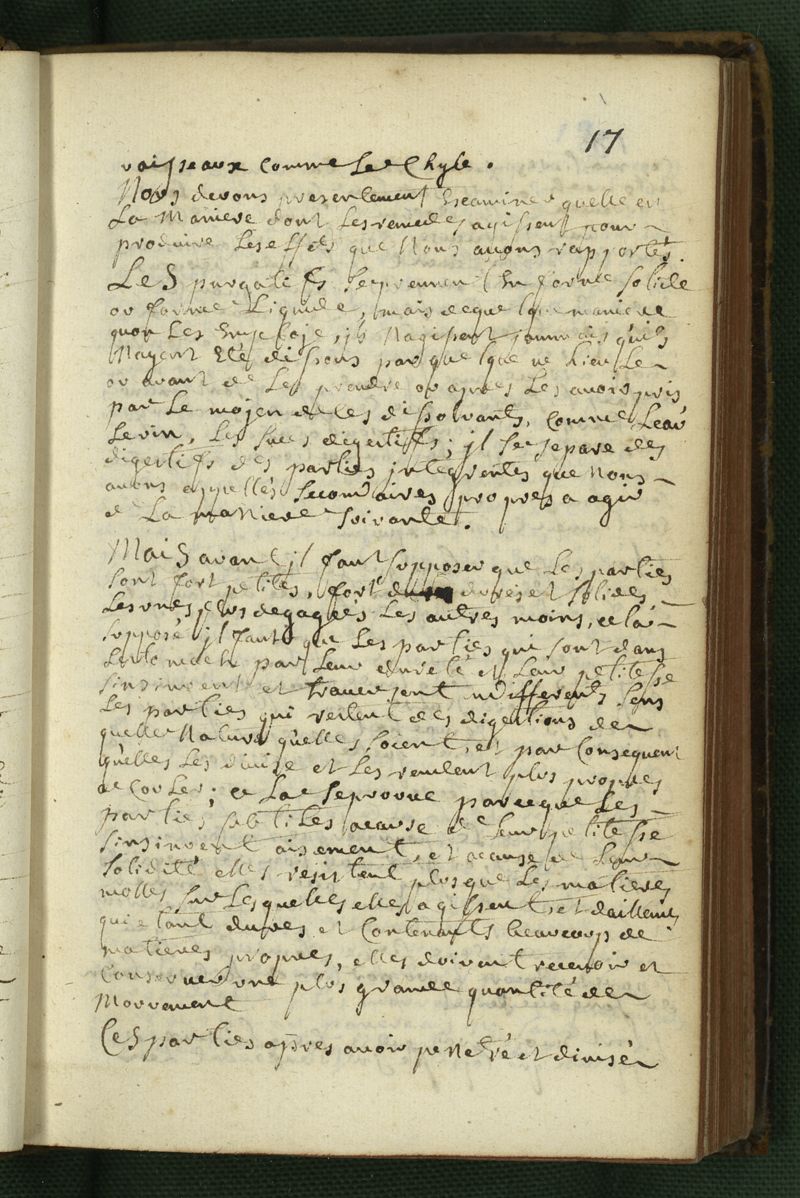 17
vaisseaux comme le Chyle.
Nous devons presentement Examiner quelle en
La Maniere dont Les remedes agissent pour
produire Les effets que Nous auons rapportés.
LeS purgatifs se prennent En forme solide
ou forme Liquide, mais de quelque maniere
quon Les Employe, ils Nagissent jammais quils
Nayent Eté dissous par quelque
ou auant de Les prendre ou apres Les auoir pris
par Le mojen de les dissolvants, comme Leau
Le vin, Les sucs digestifs; il se separe des
digestifs des parties integrentes que Nous
auons appellés secondaires propres a agir
de La maNiere suivante.
MaiS avant il faut supposer que Les parties
sont fort petites, fort dures et solides
Les unes plus degagées Les autres moins, cela
supposé il faut que Les parties qui sont dans
Lestomach par Leur dureté et Leur petitesse
sinsinuent et traversent indifferents sens
Les parties qui restent des digestions de
quelle Nature quelles soient, et par Consequent
quelles Les divise et Les rendent plus propres
a couler; ce La se prouue parceque Les
parties subtiles acause de Leur petitesse
sinsinuent aisement, et acause de Leur
solidité elles resistent plus que Les matieres
molles sur Lesquelles elles agissent, et dailleurs
qui etant dures et Contenants beaucoup de
matieres propres, elles doivent recevoir et
Conserver une plus grande quantité de
Mouvament
CeS parties apres auoir penetré et divisée